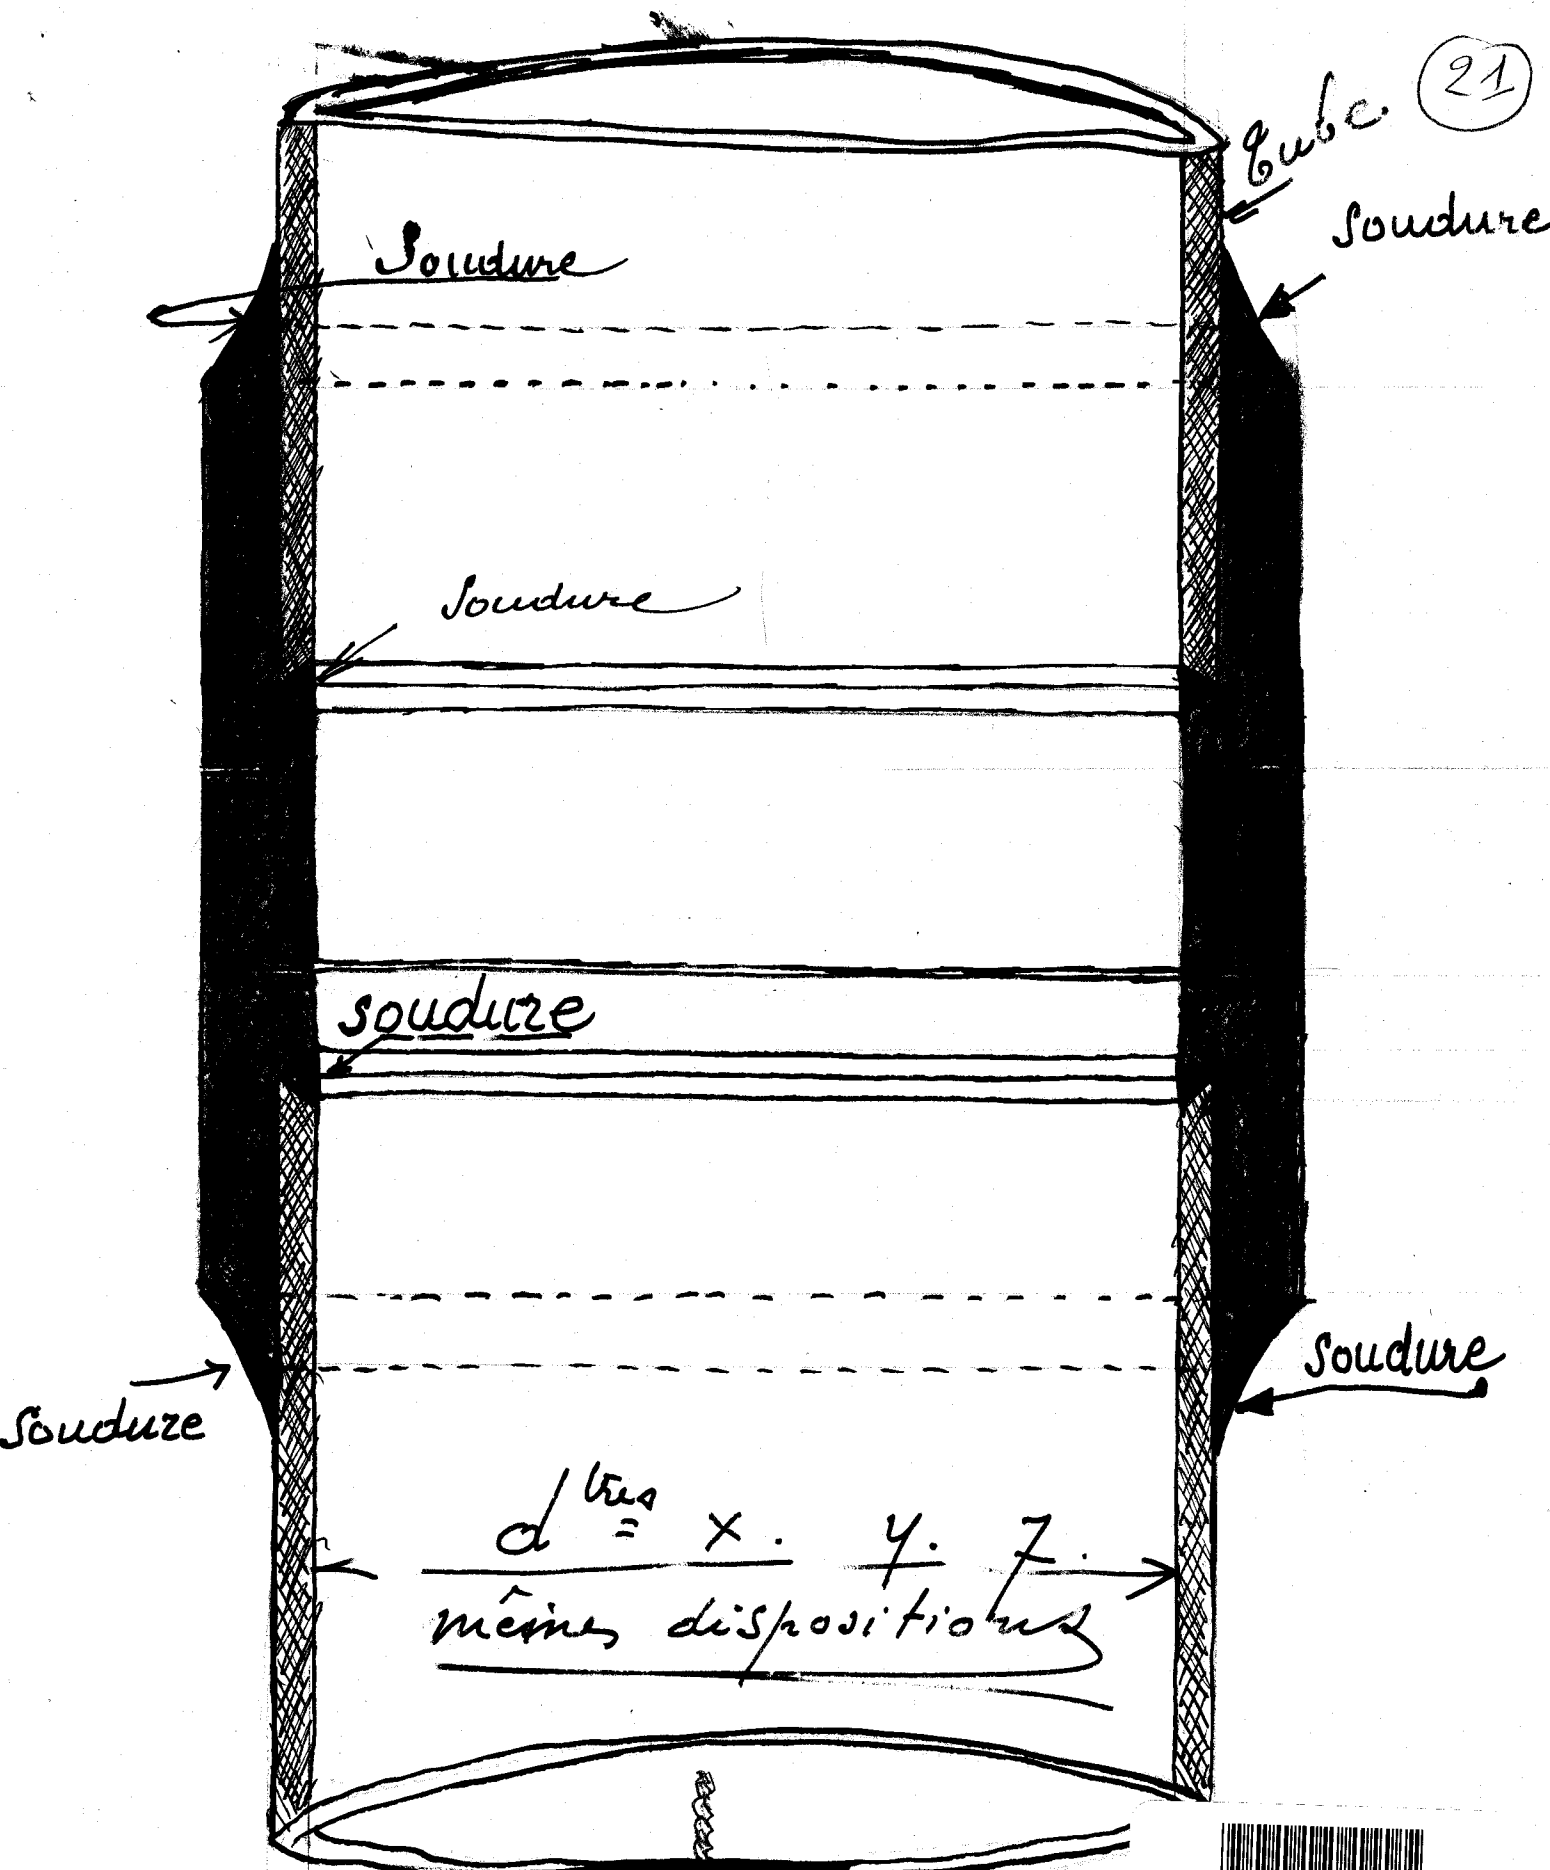 21
Tube.
Soudure
Soudure
Soudure
soudure
Soudure
Soudure
d tres = x. y. z.
mêmes dispositions